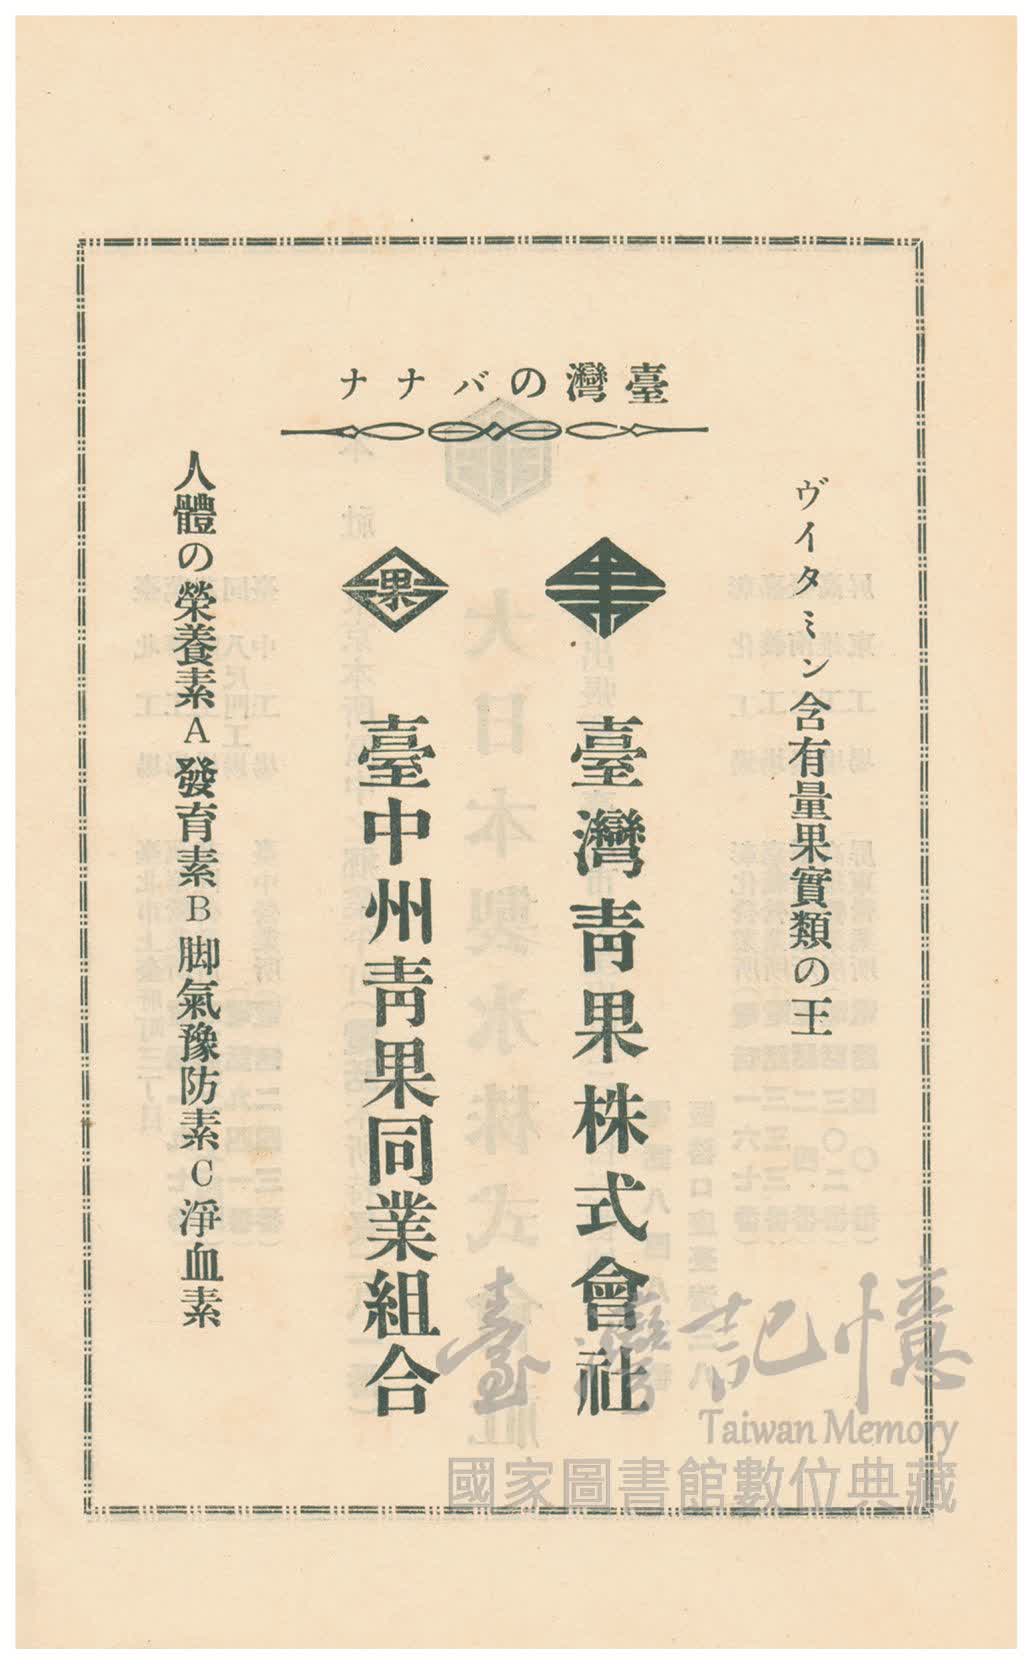 臺灣のバナナ
ヴイタミン含有量果實類の王
臺灣靑果株式會社
果
臺中州靑果同業組合
人體の榮養素A發育素B脚氣豫防素C淨血素
臺灣記憶
Taiwan Memory
國家圖書館數位典藏